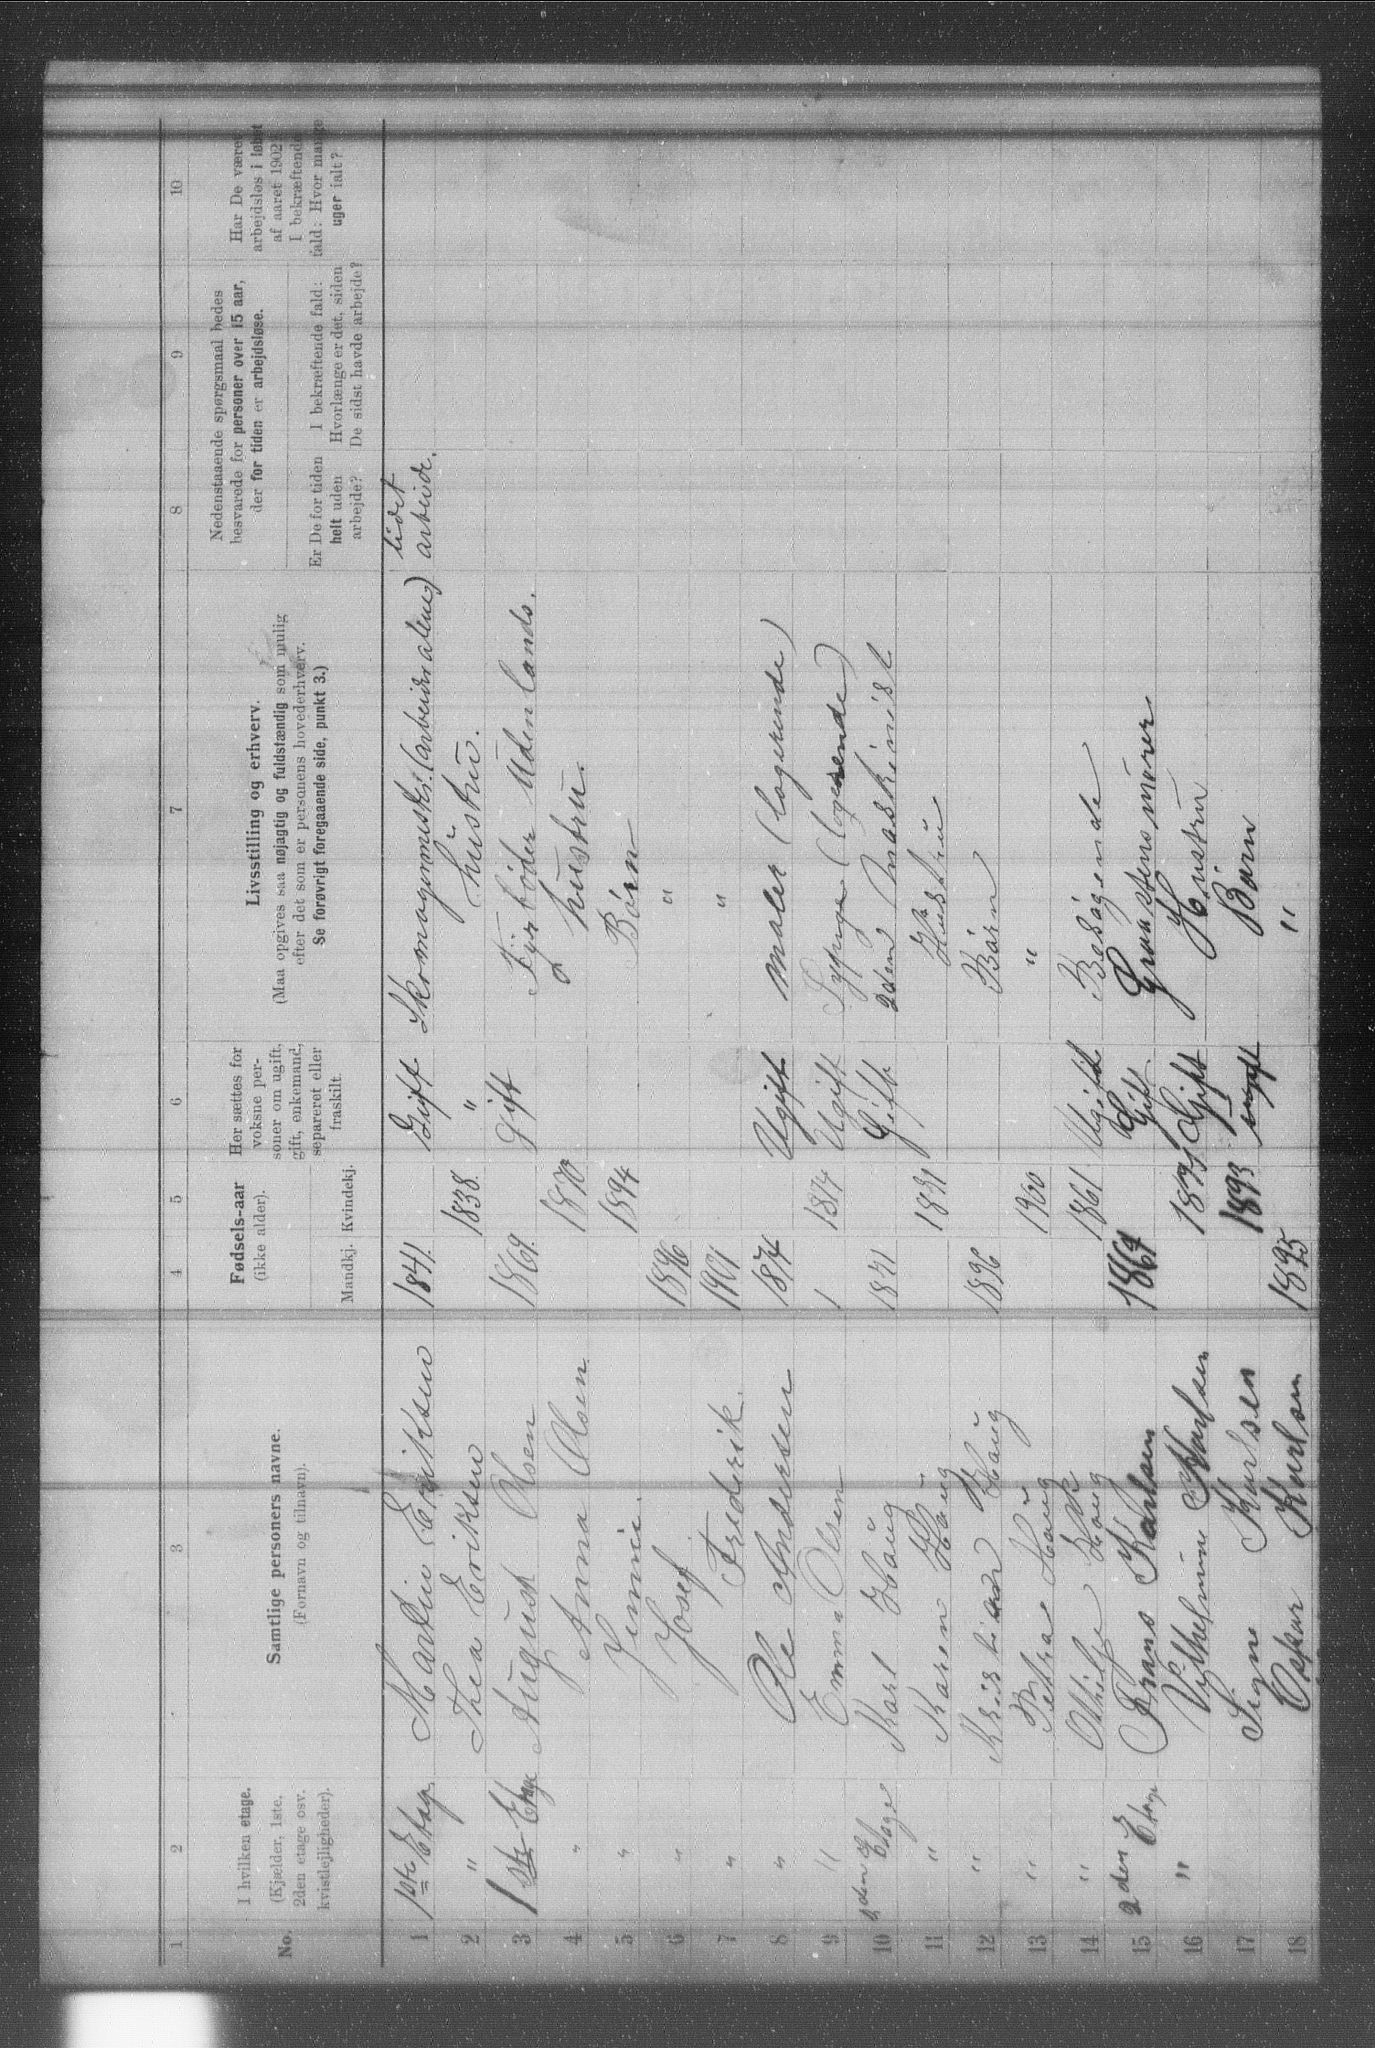 1 2 3 4 5 6 7 8 9 10
No. I hvilken etage. (Kjælder, 1ste, 2den etage osv. kvistlejligheder).
Samtlige personers navne. (Fornavn og tilnavn).
Fødsels-aar (ikke alder). Mandkj. Kvindekj.
Her sættes for voksne personer om ugift, gift, enkemand, separeret eller fraskilt.
Livsstilling og erhverv.
(Maa opgives saa nøjagtig og fuldstændig som mulig efter det som er personens hovederhverv.
Se forøvrigt foregaaende side, punkt 3.)
Nedenstaaende spørgsmaal bedes besvarede for personer over 15 aar, der for tiden er arbejdsløse.
Er De for tiden helt uden arbejde?
I bekræftende fald: Hvorlænge er det, siden De sidst havde arbejde?
Har De været arbejdsløs i løbet af aaret 1902? I bekræftende fald: Hvor mange uger ialt?
1 1ste Etage Martin Eriksen 1841. Gift Skomagermester (arbeider alene) lidet arbeide.
2 " Thea Eriksen 1838. " hustru.
3 1ste Etage August Olsen 1869. Gift Fyrbøder Udenlands.
4 " Anna Olsen 1870 hustru.
5 " Jennie. 1894 Børn
6 " Josef 1896 "
7 " Fredrik. 1901 "
8 " Ole Andersen 1874 Ugift maler (logerende)
9 " Emma Olsen 1 1874 Ugift Sypige (logerende)
10 2den Etage Karl Haug 1871 Gift 2den Maskinist
11 " Karen Haug 1871 Hustru
12 " Kristian Haug 1896 Børn
13 " Petra Haug 1900 "
14 " Othilje Haug 1861 Ugift Besøgende
15 2den Etage Frans Karlsen 1864 Gift. Graastensmurer
16 " Vilhelmine Karlsen 1871 Gift Hustru
17 Signe Karlsen 1893 ugift Børn
18 Oskar Karlsen 1895 "